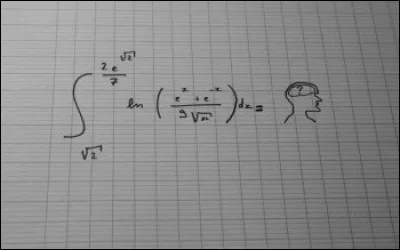 ∫_{√2}^{\frac{2e^{√2}}{7}} ln ( \frac{e^x + e^{-x}}{9√x} ) dx = ?